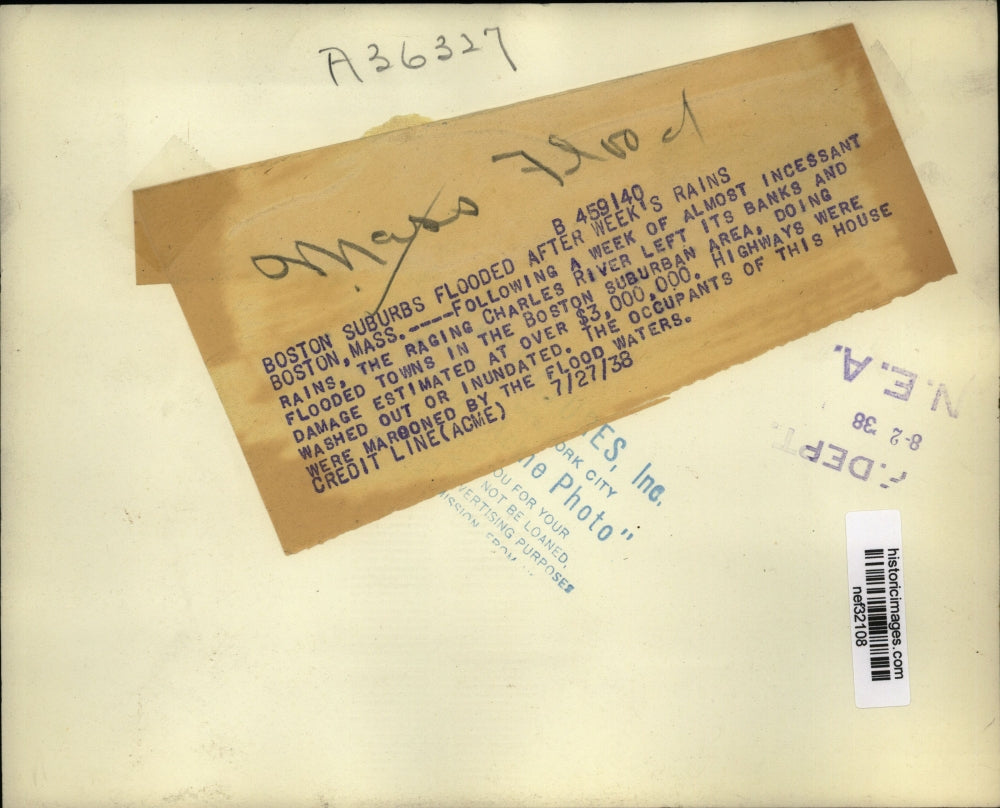 A36327
Mass Flood
B 459140
BOSTON SUBURBS FLOODED AFTER WEEK'S RAINS
BOSTON, MASS.----FOLLOWING A WEEK OF ALMOST INCESSANT
RAINS, THE RAGING CHARLES RIVER LEFT ITS BANKS AND
FLOODED TOWNS IN THE BOSTON SUBURBAN AREA, DOING
DAMAGE ESTIMATED AT OVER $3,000,000. HIGHWAYS WERE
WASHED OUT OR INUNDATED. THE OCCUPANTS OF THIS HOUSE
WERE MAROONED BY THE FLOOD WATERS.
CREDIT LINE(ACME) 7/27/38
N.E.A.
8-2 '38
F.DEPT.
ES, Inc.
ORK CITY
ne Photo"
OU FOR YOUR
NOT BE LOANED,
VERTISING PURPOSES
MISSION FROM
historicimages.com
nef32108